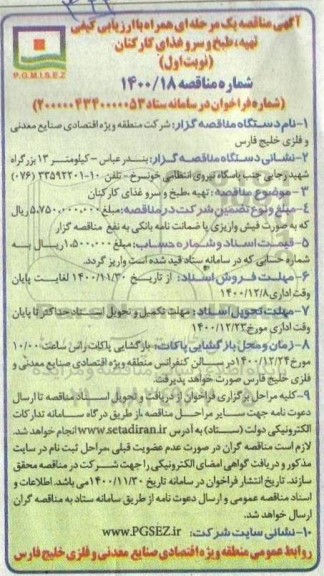 آگهی مناقصه یک مرحله ای همراه با ارزیابی کیفی
تهیه، طبخ و سرو غذای کارکنان
(نوبت اول)
شماره مناقصه ۱۴۰۰/۱۸
(شماره فراخوان در سامانه ستاد ۲۰۰۰۰۰۴۳۴۰۰۰۰۰۵۳)
P.G.M.I.S.E.Z
۱-نام دستگاه مناقصه گزار: شرکت منطقه ویژه اقتصادی صنایع معدنی
و فلزی خلیج فارس
۲-نشانی دستگاه مناقصه گزار: بندرعباس -کیلومتر ۱۳ بزرگراه
شهید رجایی جنب پاسگاه نیروی انتظامی خونسرخ - تلفن ۱۰-۳۳۵۹۲۲۰۱ (۰۷۶)
۳- موضوع مناقصه: تهیه ،طبخ و سرو غذای کارکنان
۴-مبلغ و نوع تضمین شرکت در مناقصه: مبلغ ۵,۷۵۰,۰۰۰,۰۰۰ ریال
که به صورت فیش واریزی یا ضمانت نامه بانکی به نفع مناقصه گزار
۵-قیمت اسناد و شماره حساب: مبلغ ۱,۵۰۰,۰۰۰ ریال به
شماره حسابی که در سامانه ستاد قید شده است واریز گردد.
۶-مهلت فروش اسناد: از تاریخ ۱۴۰۰/۱۱/۳۰ لغایت پایان
وقت اداری ۱۴۰۰/۱۲/۸
۷-مهلت تحویل اسناد: مهلت تکمیل و تحویل اسناد حداکثر تا پایان
وقت اداری مورخ ۱۴۰۰/۱۲/۲۳
۸-زمان و محل بازگشایی پاکات: بازگشایی پاکات راس ساعت ۱۰/۰۰
مورخ ۱۴۰۰/۱۲/۲۴ در سالن کنفرانس منطقه ویژه اقتصادی صنایع معدنی و
فلزی خلیج فارس صورت خواهد پذیرفت.
۹-کلیه مراحل برگزاری فراخوان از دریافت و تحویل اسناد مناقصه تا ارسال
دعوت نامه جهت سایر مراحل مناقصه از طریق درگاه سامانه تدارکات
الکترونیکی دولت (ستاد) به آدرس www.setadiran.ir انجام خواهد شد.
لازم است مناقصه گران در صورت عدم عضویت قبلی ،مراحل ثبت نام در سایت
مذکور و دریافت گواهی امضای الکترونیکی را جهت شرکت در مناقصه محقق
سازند. تاریخ انتشار فراخوان در سامانه تاریخ ۱۴۰۰/۱۱/۳۰ می باشد. اطلاعات و
اسناد مناقصه عمومی و ارسال دعوت نامه از طریق سامانه ستاد به مناقصه گران
ارسال خواهد شد.
۱۰-نشانی سایت شرکت: www.PGSEZ.ir
روابط عمومی منطقه ویژه اقتصادی صنایع معدنی و فلزی خلیج فارس